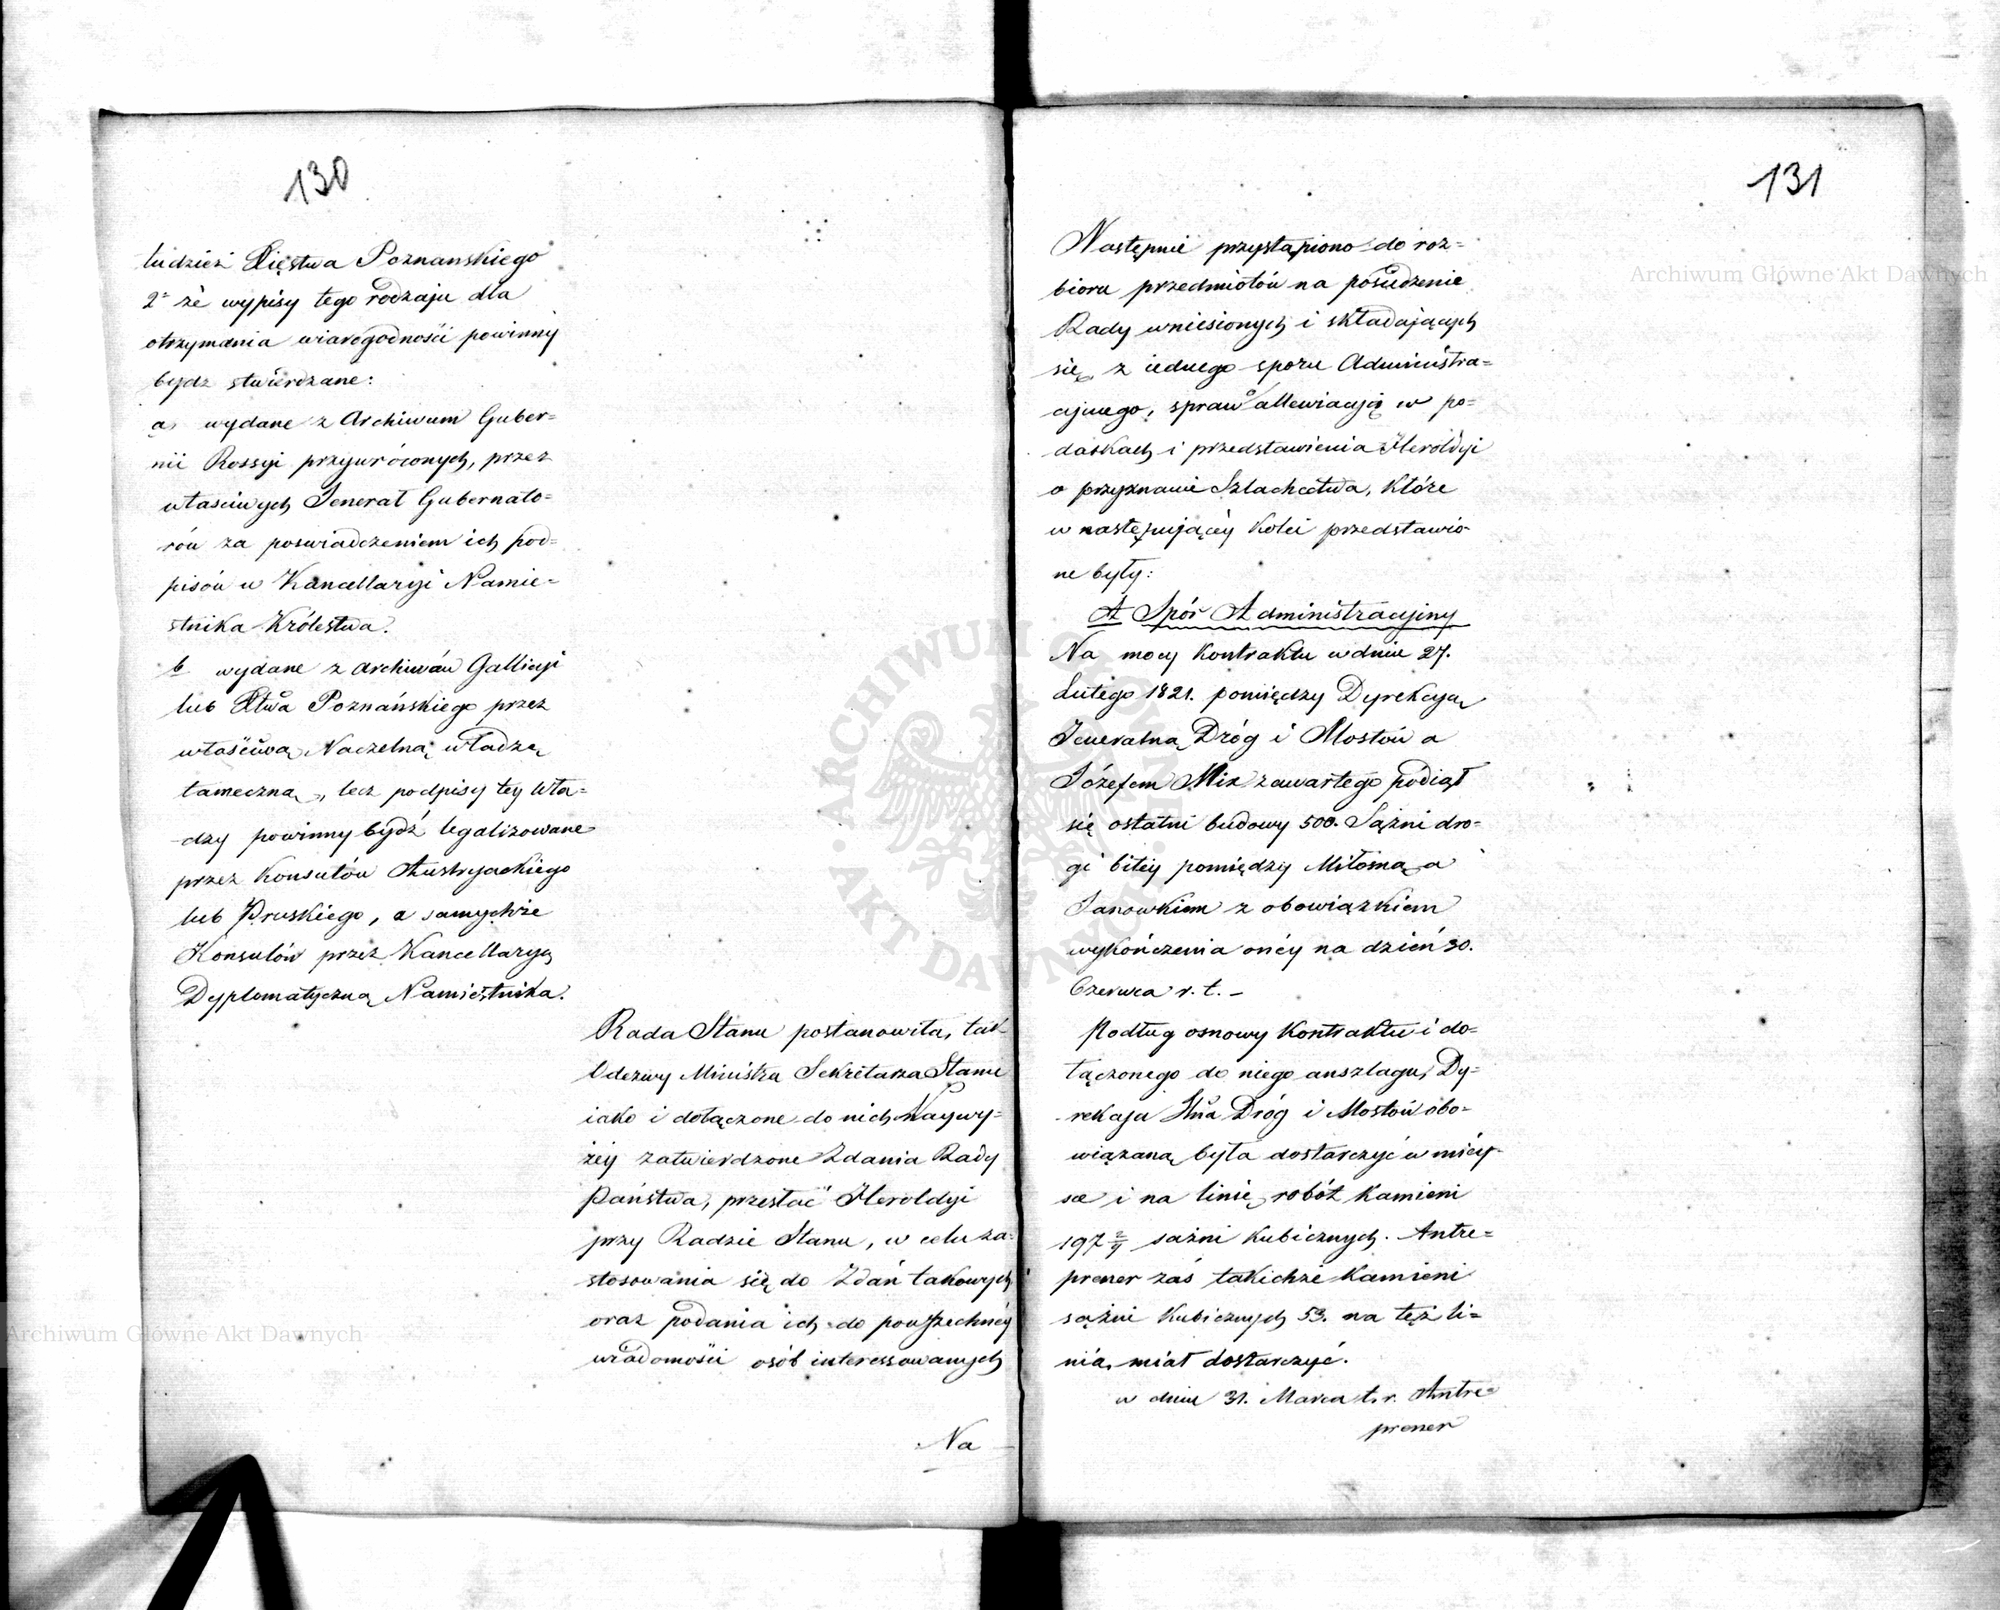 130
tudzież Xięstwa Poznanskiego
2º że wypisy tego rodzaju dla
otrzymania wiarogodności powinny
bydz stwierdzane:
a, wydane z Archiwum Guber=
nii Rossyi przywróconych, przez
właściwych Jenerał Gubernato=
rów za poswiadczeniem ich pod=
pisów w Kancellaryi Namie=
stnika Królestwa.
b wydane z archiwów Gallicyi
lub Xtwa Poznańskiego przez
właściwą Naczelną władzę
tameczną, lecz podpisy tey wła=
dzy powinny bydź legalizowane
przez Konsulów Austryackiego
lub Pruskiego, a samychże
Konsulów przez Kancellaryę
Dyplomatyczną Namiestnika.
Rada Stanu postanowiła, tak
Odezwy Ministra Sekretarza Stanu
iako i dołączone do nich Naywy=
żey zatwierdzone Zdania Rady
Państwa, przesłać Heroldyi
przy Radzie Stanu, w celu za=
stosowania się do Zdań takowych
oraz podania ich do powszechnéy
wiadomości osób interessowanych
Na
131
Następnie przystąpiono do roz=
bioru przedmiotów na posiedzenie
Rady wniesionych i składających
się z iednego sporu Administra=
cyjnego, spraw o allewiacyją w po=
datkach i przedstawienia Heroldyi
o przyznanie Szlachectwa, które
w następującéy kolei przedstawio=
ne były:
A Spór Administracyjny
Na mocy Kontraktu w dniu 27.
Lutego 1821. pomiędzy Dyrekcyą
Jeneralną Dróg i Mostów a
Józefem Mix zawartego podiął
się ostatni budowy 500. Sążni dro=
gi bitéy pomiędzy Miłosną a
Janowkiem z obowiązkiem
wykończenia onéy na dzień 30.
Czerwca r. t. –
Podług osnowy Kontraktu i do=
łączonego do niego anszlagu, Dy=
rekcyja Jlna Dróg i Mostów obo=
wiązaną była dostarczyć w miéy=
sce i na linię robót Kamieni
197 2/9 sążni Kubicznych. Antre=
prener zaś takichże Kamieni
sążni Kubicznych 53. na téż li=
nią miał dostarczyć.
w dniu 31. Marca t. r. Antre=
prener
Archiwum Główne Akt Dawnych
Archiwum Główne Akt Dawnych
ARCHIWUM GŁÓWNE AKT DAWNYCH